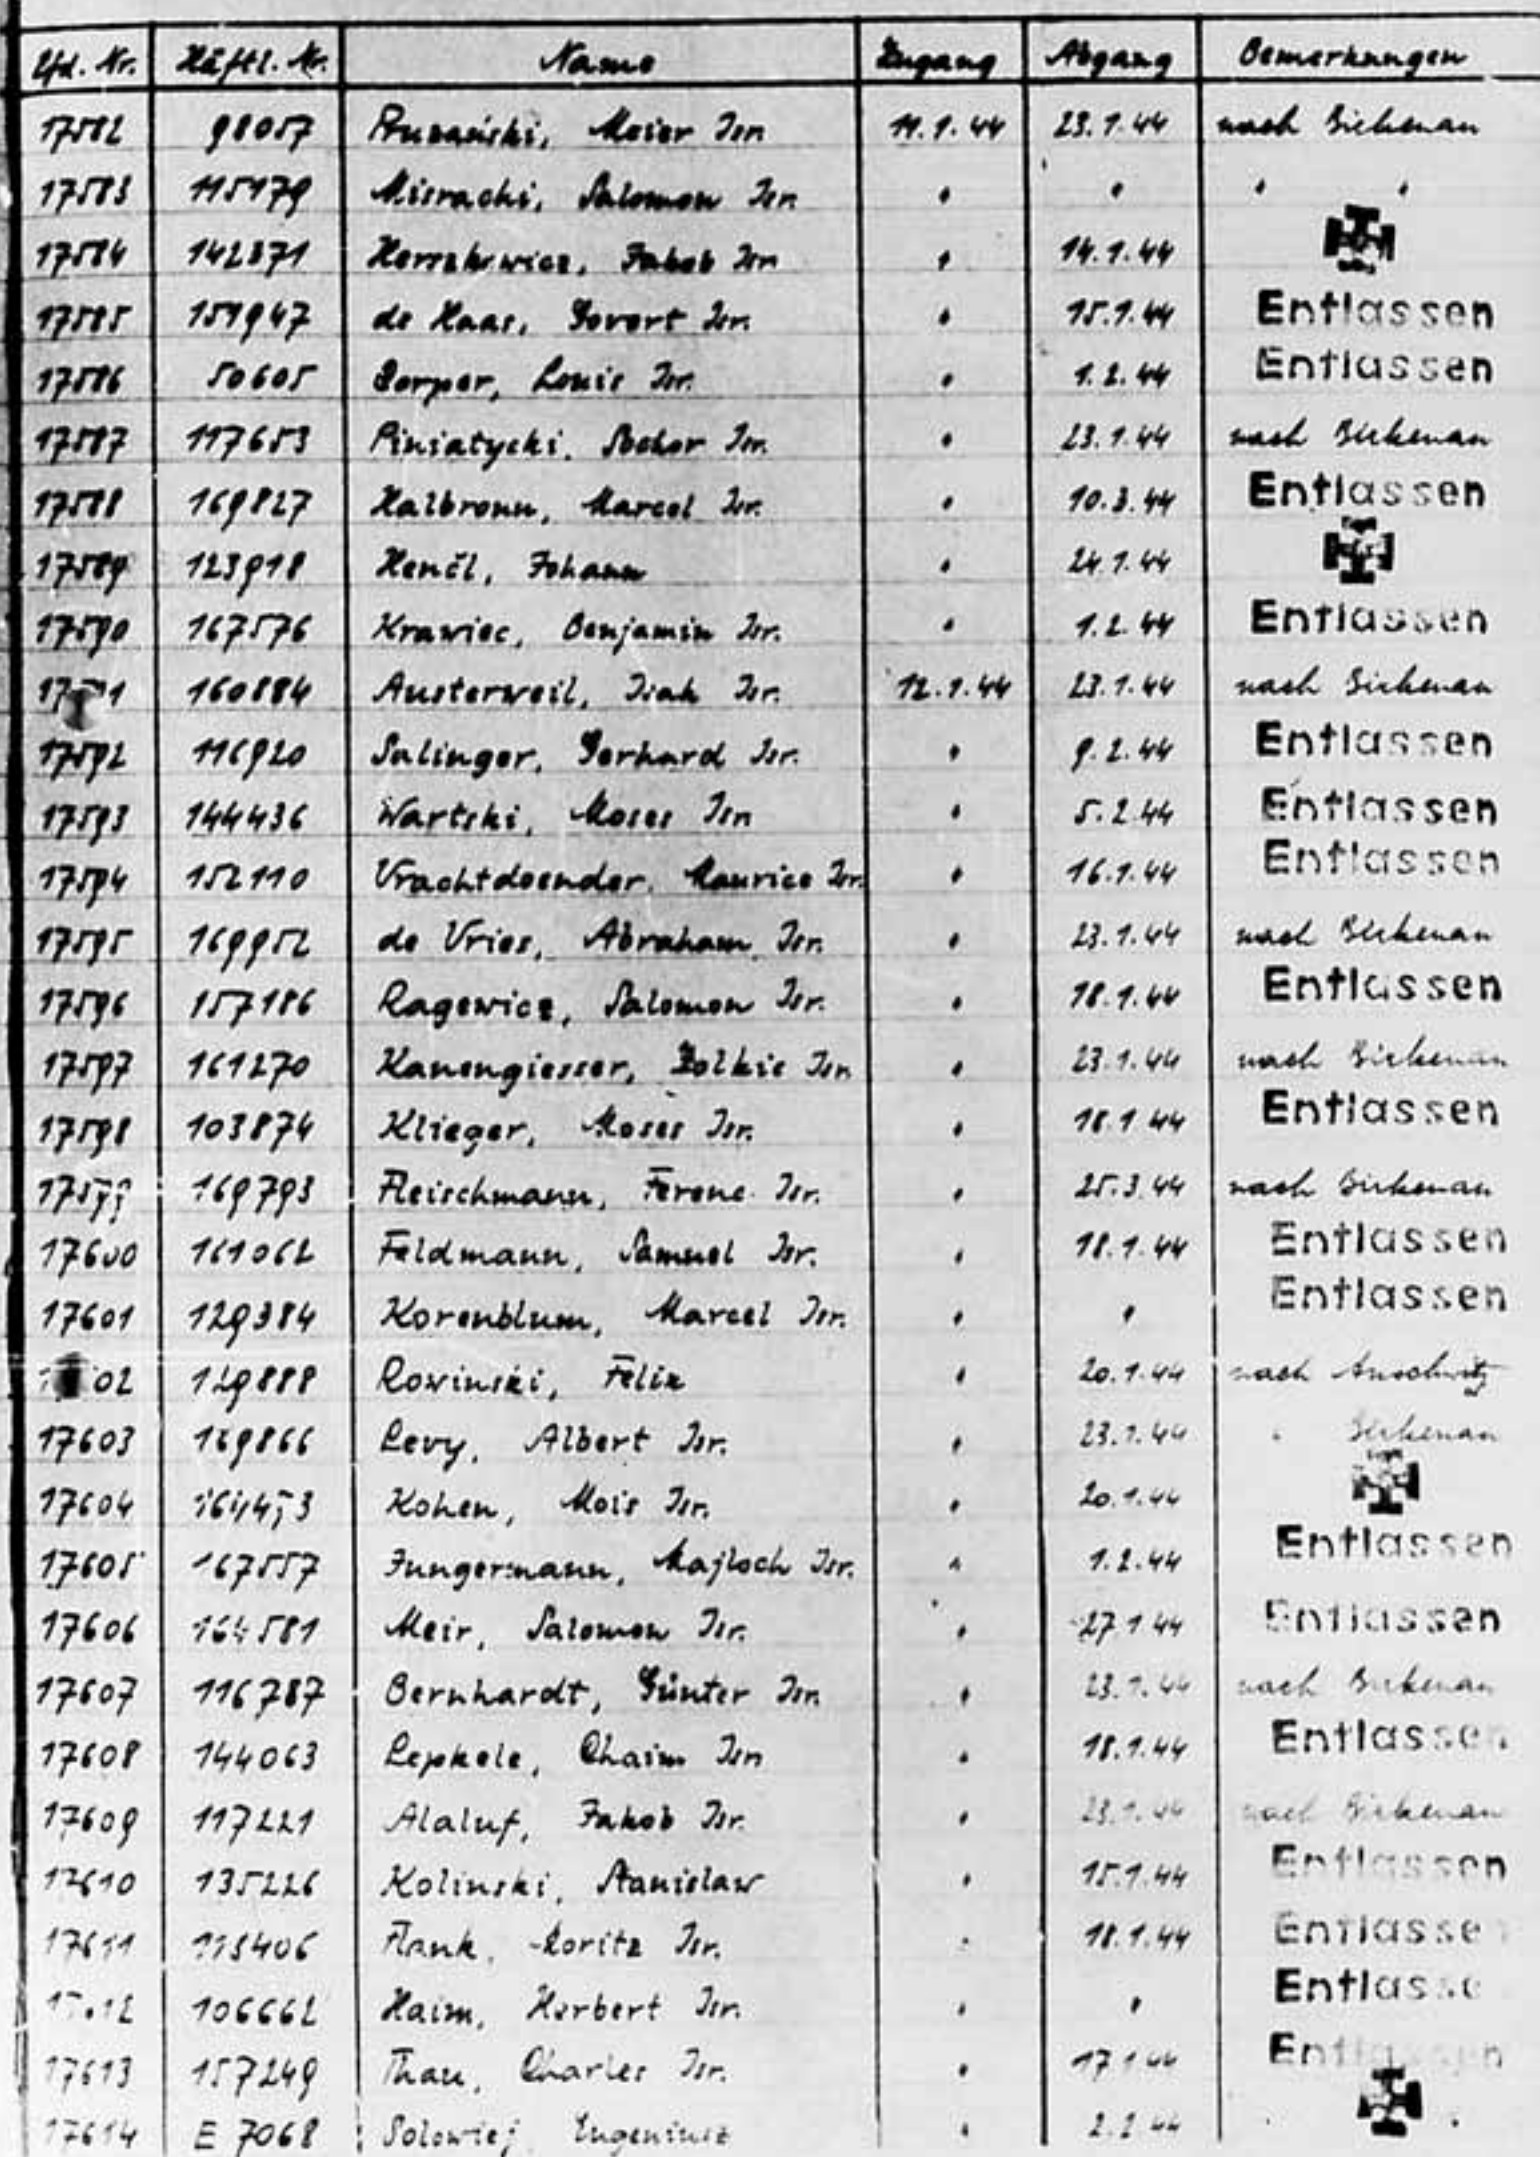 Lfd. Nr. Häftl. Nr. Name Zugang Abgang Bemerkungen
17582 98057 Pruzański, Meier Isr. 11.1.44 23.1.44 nach Birkenau
17583 115179 Misrachi, Salomon Isr. " " " "
17584 142371 Herszkowicz, Jakob Isr. " 14.1.44
17585 151947 de Haas, Govert Isr. " 15.1.44 Entlassen
17586 50605 Louis Isr. " 1.2.44 Entlassen
17587 117653 Piniatycki, Isr. " 23.1.44 nach Birkenau
17588 169827 Halbronn, Marcel Isr. " 10.3.44 Entlassen
17589 123918 Henčl, Johann " 24.1.44
17590 167576 Krawiec, Benjamin Isr. " 1.2.44 Entlassen
160884 Austerweil, Isak Isr. 12.1.44 23.1.44 nach Birkenau
17592 116920 Salinger, Gerhard Isr. " 9.2.44 Entlassen
17593 144436 Wartski, Moses Isr. " 5.2.44 Entlassen
17594 152110 Vrachtdoender, Maurice Isr. " 16.1.44 Entlassen
17595 169952 de Vries, Abraham Isr. " 23.1.44 nach Birkenau
17596 157186 Ragewicz, Salomon Isr. " 18.1.44 Entlassen
17597 161270 Kanengiesser, Isr. " 23.1.44 nach Birkenau
17598 103874 Klieger, Moses Isr. " 18.1.44 Entlassen
17599 169793 Fleischmann, Ferenc Isr. " 25.3.44 nach Birkenau
17600 161062 Feldmann, Samuel Isr. " 18.1.44 Entlassen
17601 129384 Korenblum, Marcel Isr. " " Entlassen
129888 Rowinski, Felix " 20.1.44 nach Auschwitz
17603 169866 Levy, Albert Isr. " 23.1.44 " Birkenau
17604 Kohen, Mois Isr. " 20.1.44
17605 167557 Jungermann, Majloch Isr. " 1.2.44 Entlassen
17606 164581 Meir, Salomon Isr. " 27.1.44 Entlassen
17607 116787 Bernhardt, Günter Isr. " 23.1.44 nach Birkenau
17608 144063 Lepkele, Chaim Isr. " 18.1.44 Entlassen
17609 117221 Alaluf, Jakob Isr. " 23.1.44 nach Birkenau
17610 135226 Kolinski, Stanislaw " 15.1.44 Entlassen
17611 113406 Frank, Moritz Isr. " 18.1.44 Entlassen
106662 Haim, Herbert Isr. " " Entlassen
17613 157249 Thau, Charles Isr. " 17.1.44 Entlassen
17614 E 7068 Solowiej Eugeniusz " 2.2.44